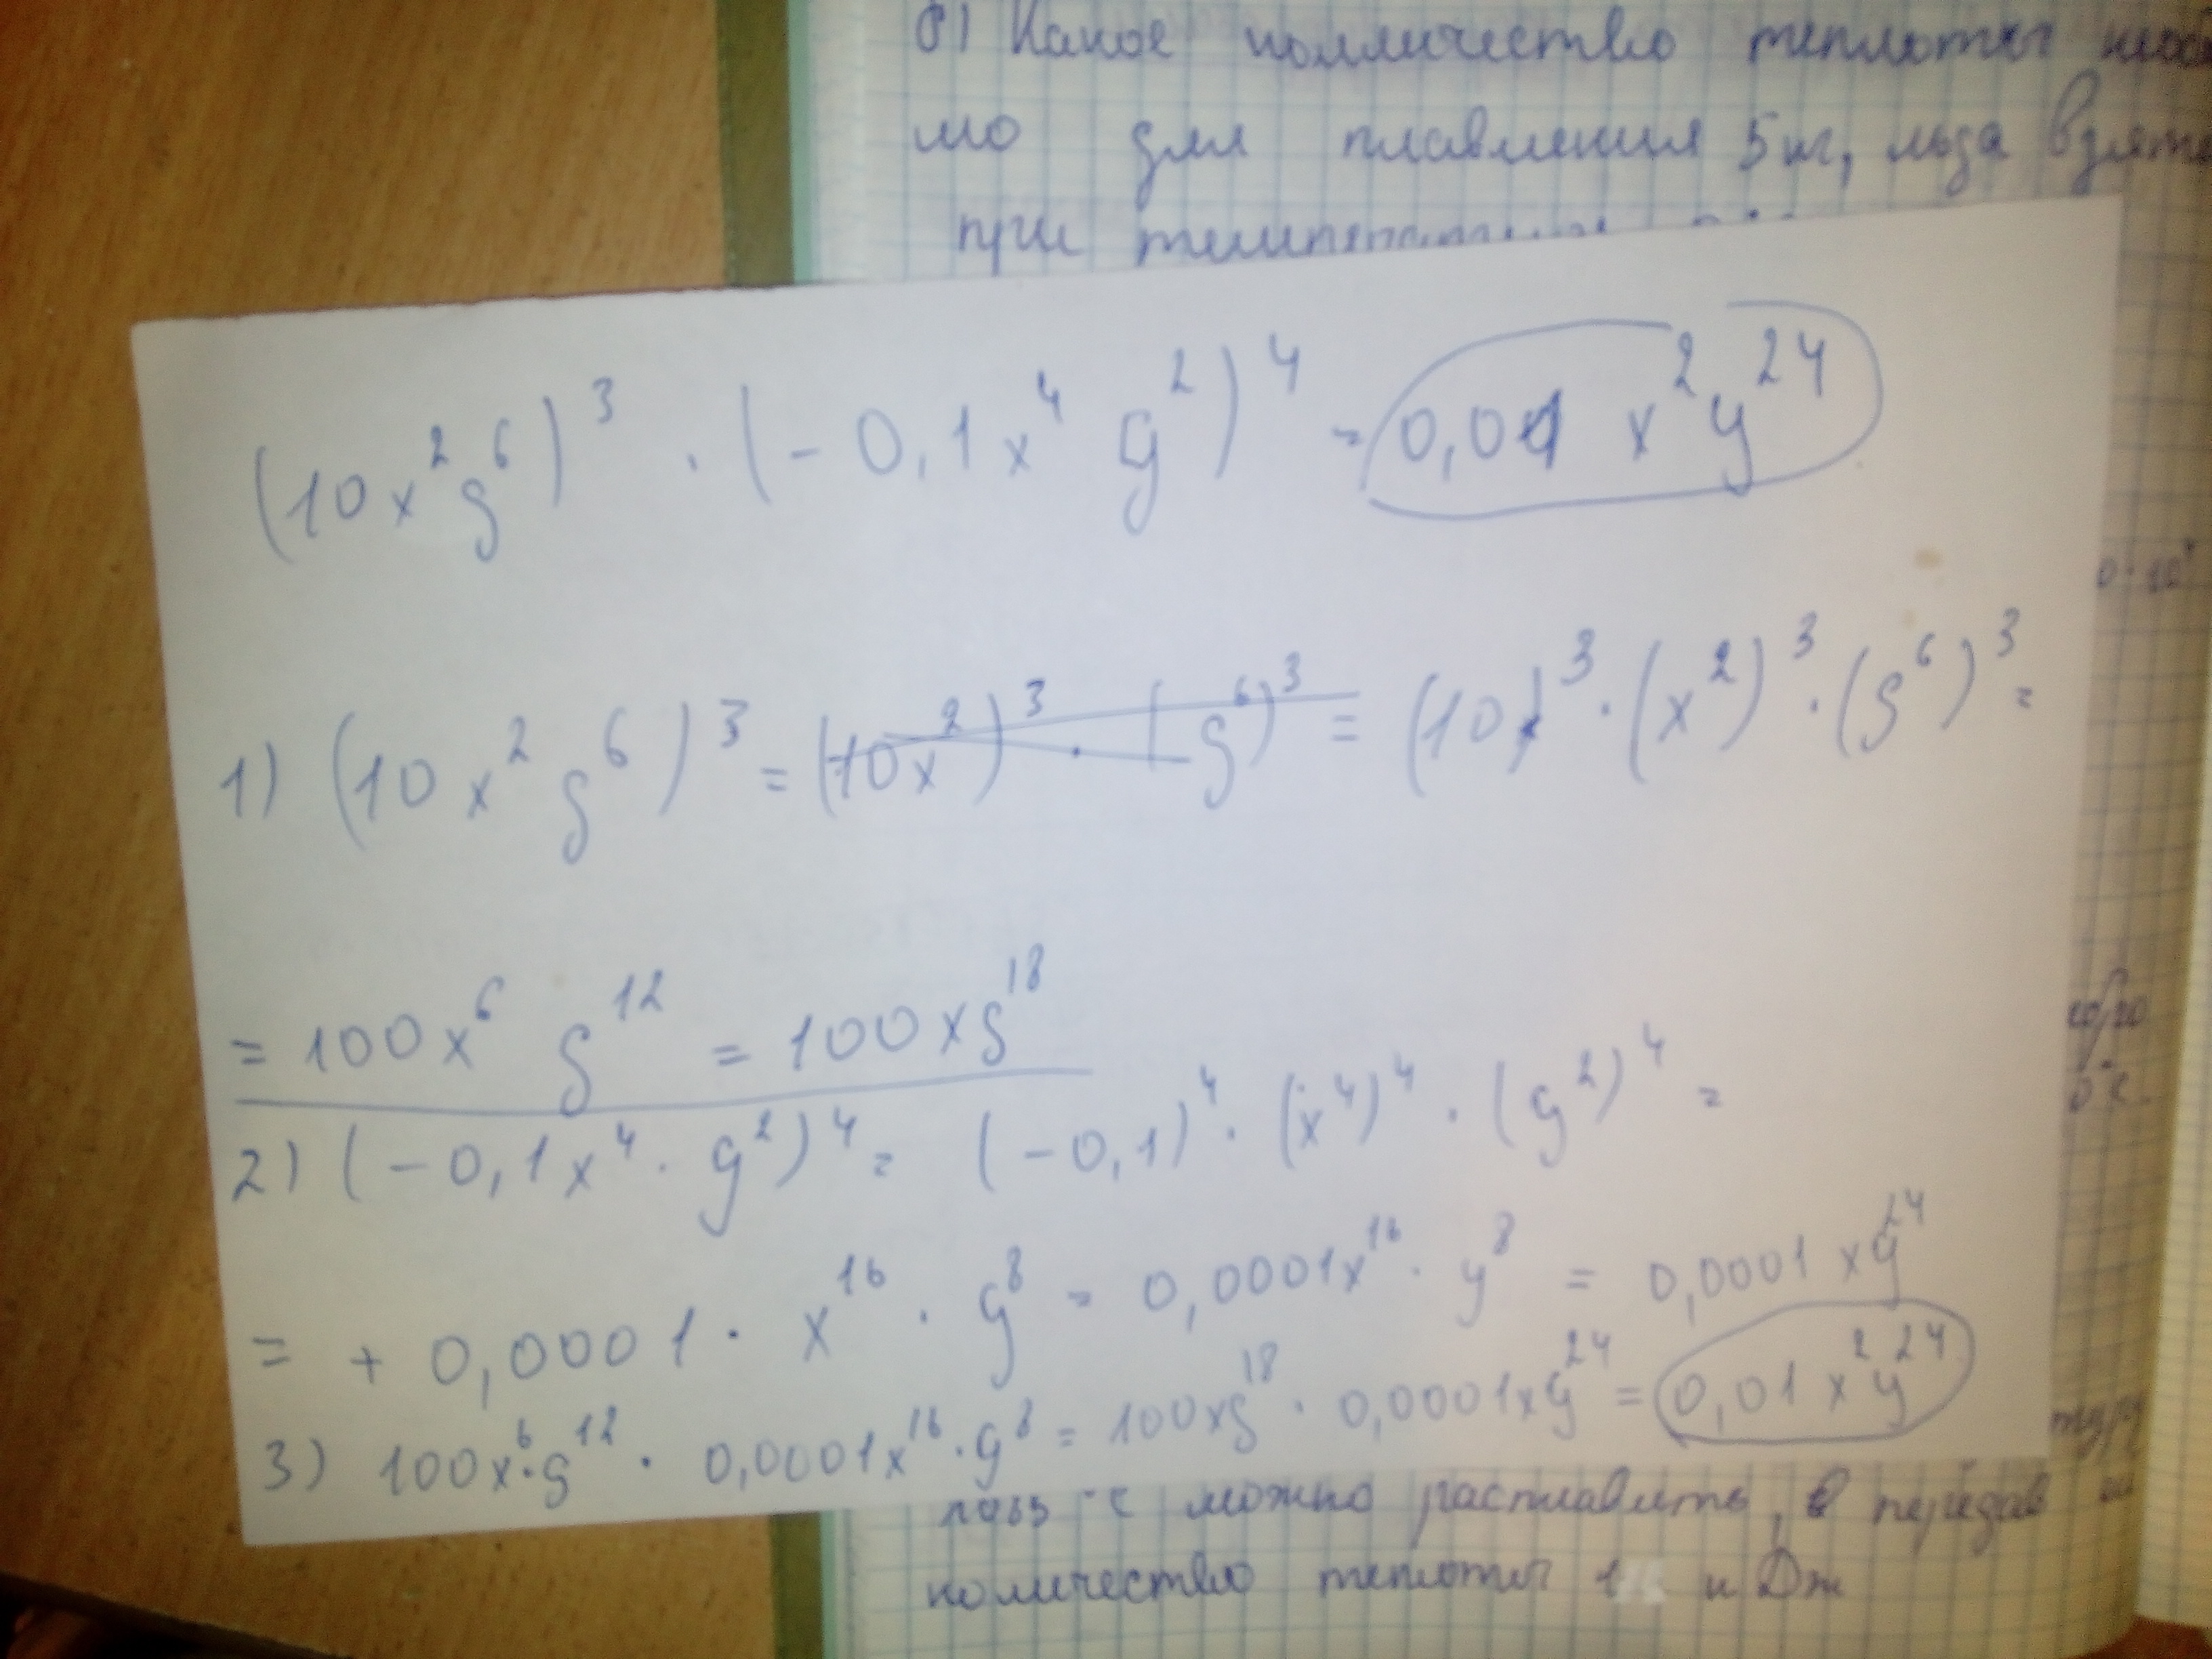 б) Какое колличество теплоты
мо для плавления 5 кг, льда
при
(10x²y⁶)³ · (-0,1x⁴ y²)⁴ = 0,01 x²y²⁴
1) (10x²y⁶)³ = (10x²)³ · (y⁶)³ = (10)³ · (x²)³ · (y⁶)³ =
= 100x⁶ y¹² = 100xy¹⁸
2) (-0,1x⁴ · y²)⁴ = (-0,1)⁴ · (x⁴)⁴ · (y²)⁴ =
= + 0,0001 · x¹⁶ · y⁸ = 0,0001x¹⁶ · y⁸ = 0,0001xy²⁴
3) 100x⁶·y¹² · 0,0001x¹⁶·y⁸ = 100xy¹⁸ · 0,0001xy²⁴ = 0,01x²y²⁴
можно расплавить, передав
количество теплоты Дж